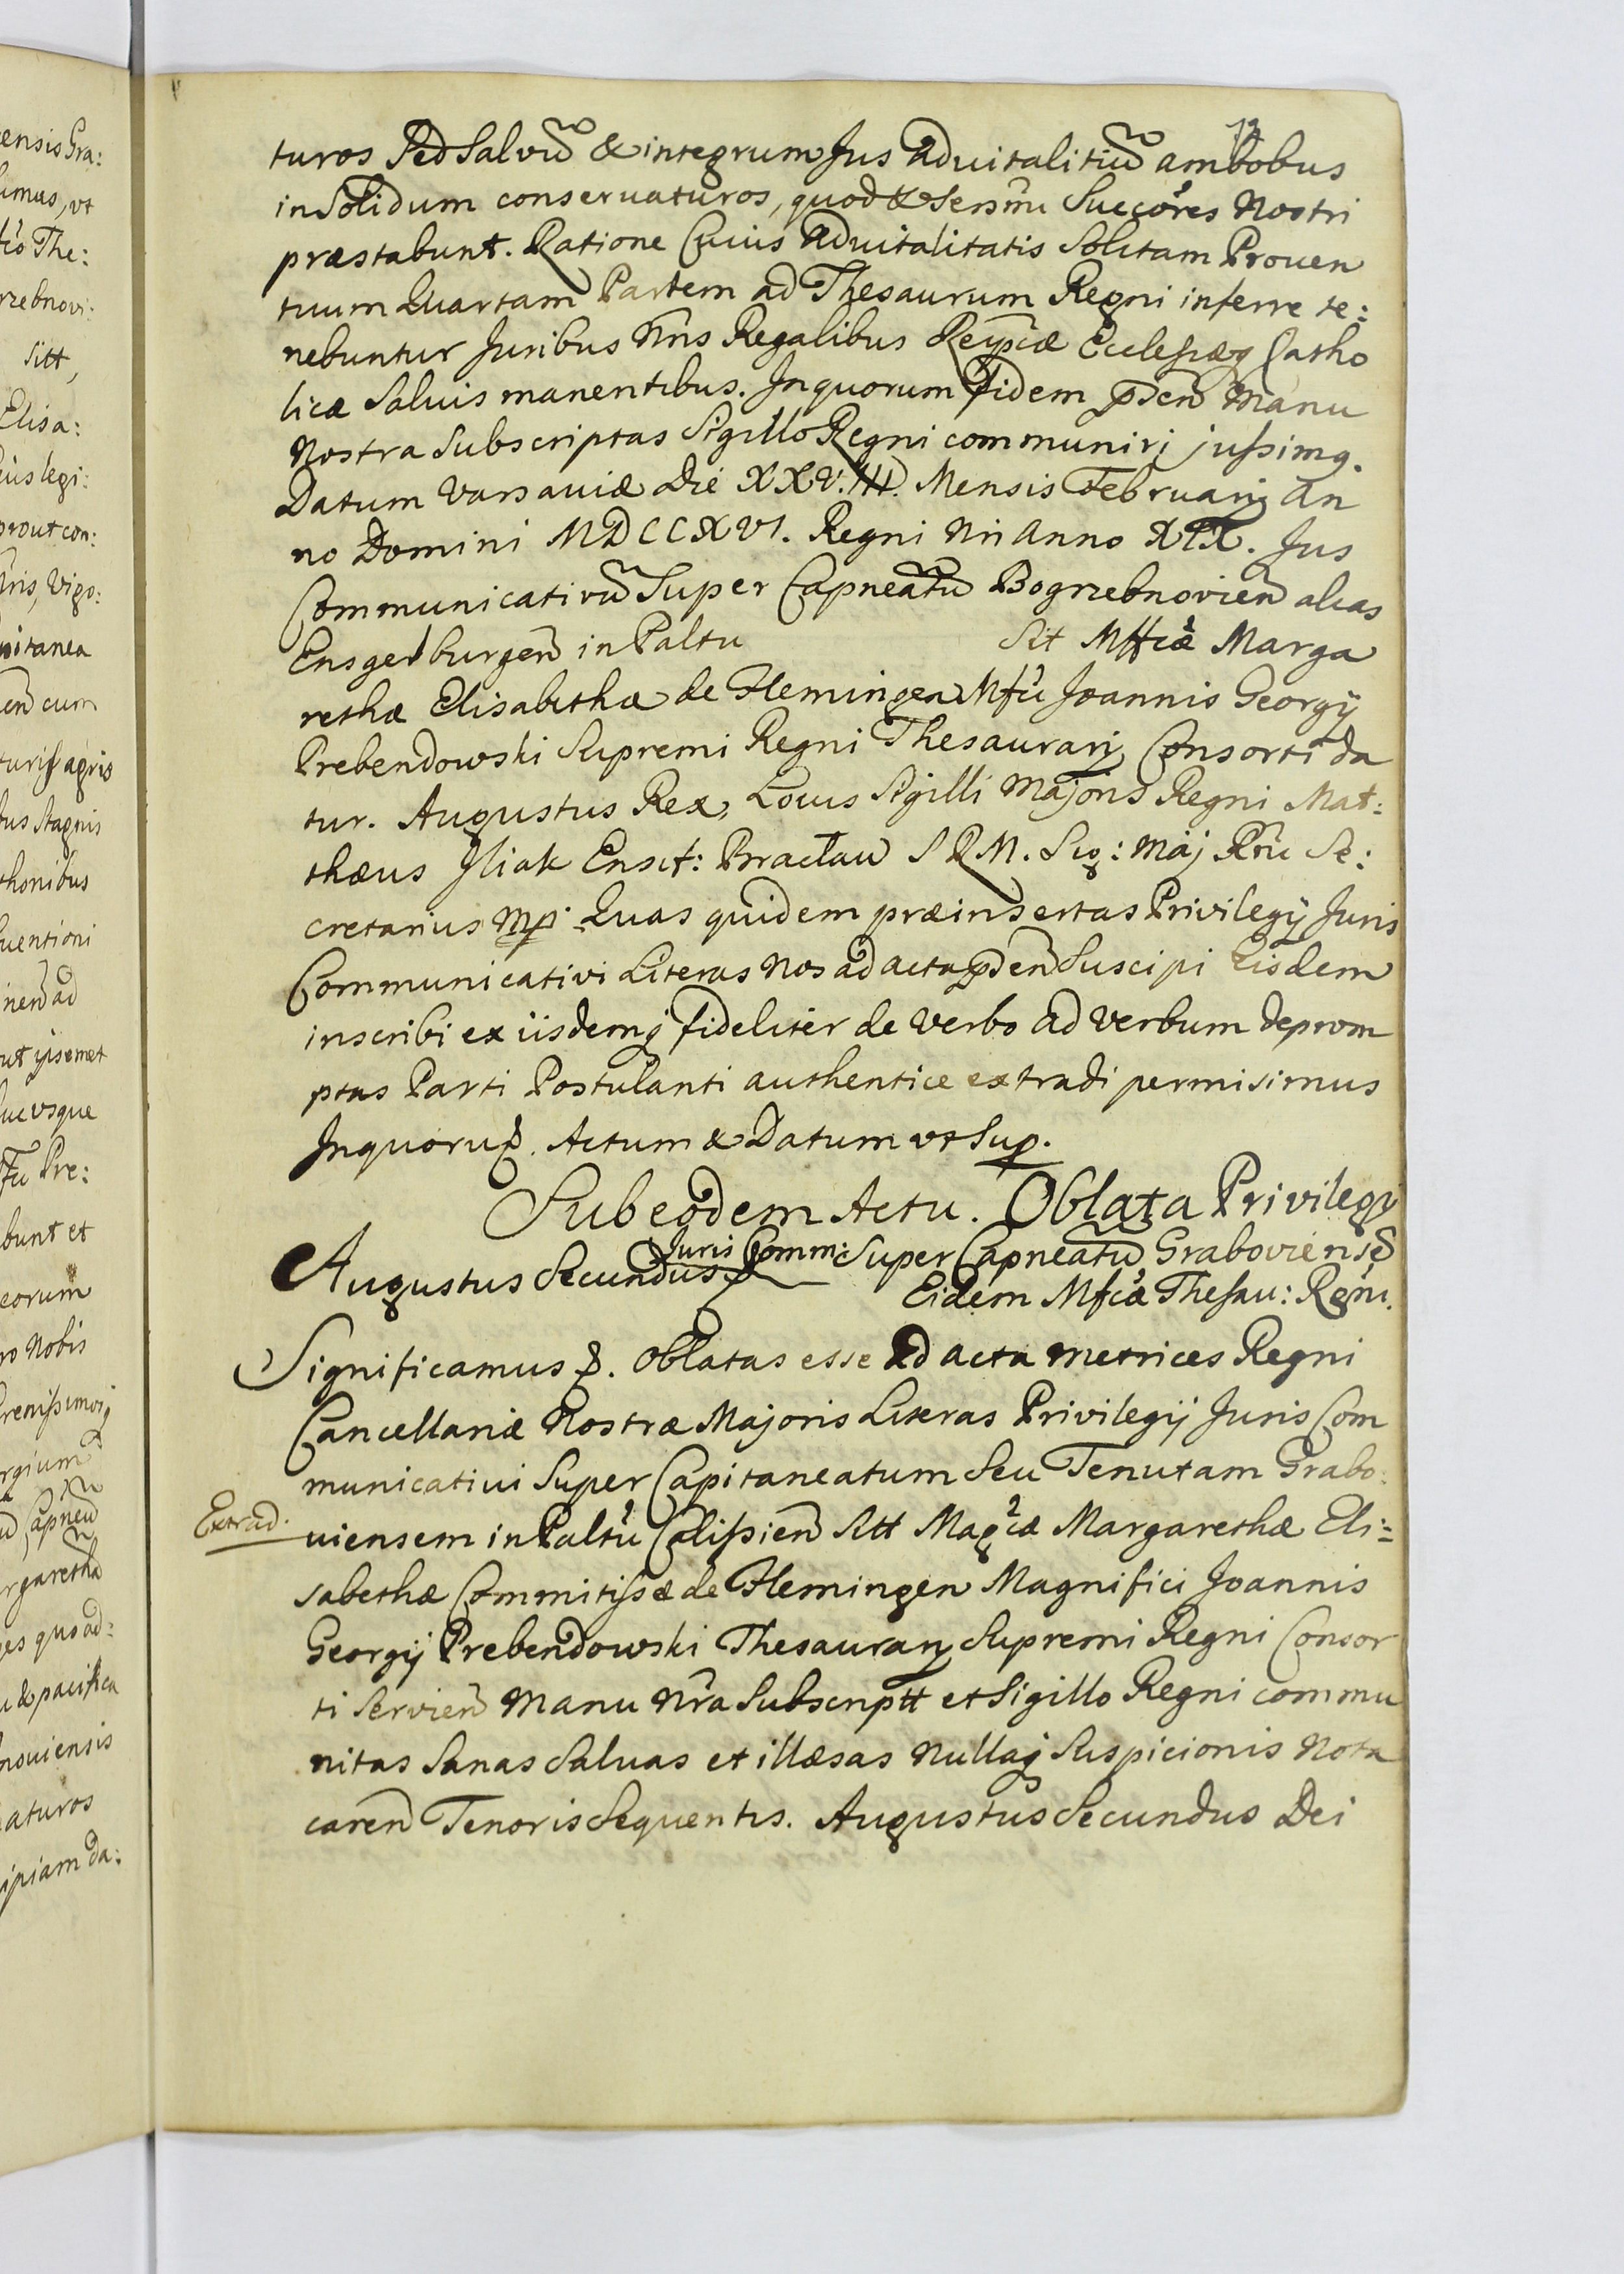 turos Sed Salvũ & integrum Jus Aduitalitiũ ambobus
in Solidum conseruaturos, quod & Sersmi Succőres Nostri
præstabunt. Ratione Cuius Aduitalitatis Solitam Prouen
tuum Quartam Partem ad Thesaurum Regni inferre te:
nebuntur Juribus Nris Regalibus Reipcæ Ecclesiæq Catho
licæ Saluis manentibus. In quorum Fidem pñden Manu
Nostra Subscriptas Sigillo Regni communiri jussimq.
Datum Varsauiæ Die XXV.III. Mensis Februarij An
no Domini MDCCXVI. Regni Nri Anno XIX. Jus
Communicativũ Super Capneatũ Bogrzebnovien alias
Ensgelburgen in Paltu Sit Mffcæ Marga
rethæ Elisabethæ de Flemingen Mfci Joannis Georgij
Prebendowski Supremi Regni Thesaurarij Consorti da
tur. Augustus Rex, Locus Sigilli Majoris Regni Mat:
thæus Iliak Ensif: Bractaw S R M. Sig: Maj Rni Se:
cretarius mp. Quas quidem præinsertas Privilegij Juris
Communicativi Literas Nos ad acta pñden Suscipi Eisdem
inscribi ex iisdemq fideliter de verbo ad verbum deprom
ptas Parti Postulanti authentice extradi permisimus
In quoru &. Actum & Datum ut Sup.
Sub eodem Actu. Oblata Privilegij
Juris Comm: Super Capneatũ Graboviense
Augustus Secundus &
Eidem Mfcæ Thesau: Regni.
Significamus &. Oblatas esse ad acta Metrices Regni
Cancellariæ Nostræ Majoris Literas Privilegij Juris Com
municatiui Super Capitaneatum Seu Tenutam Grabo:
Extrad.
uiensem in Paltu Calissien Sitt Magcæ Margarethæ Eli:
sabethæ Commitissæ de Flemingen Magnifici Joannis
Georgij Prebendowski Thesaurarij Supremi Regni Consor
ti Servien Manu Nra Subscriptt et Sigillo Regni commu
nitas Sanas Saluas et illæsas Nullaq Suspicionis Nota
caren Tenoris Sequentis. Augustus Secundus Dei